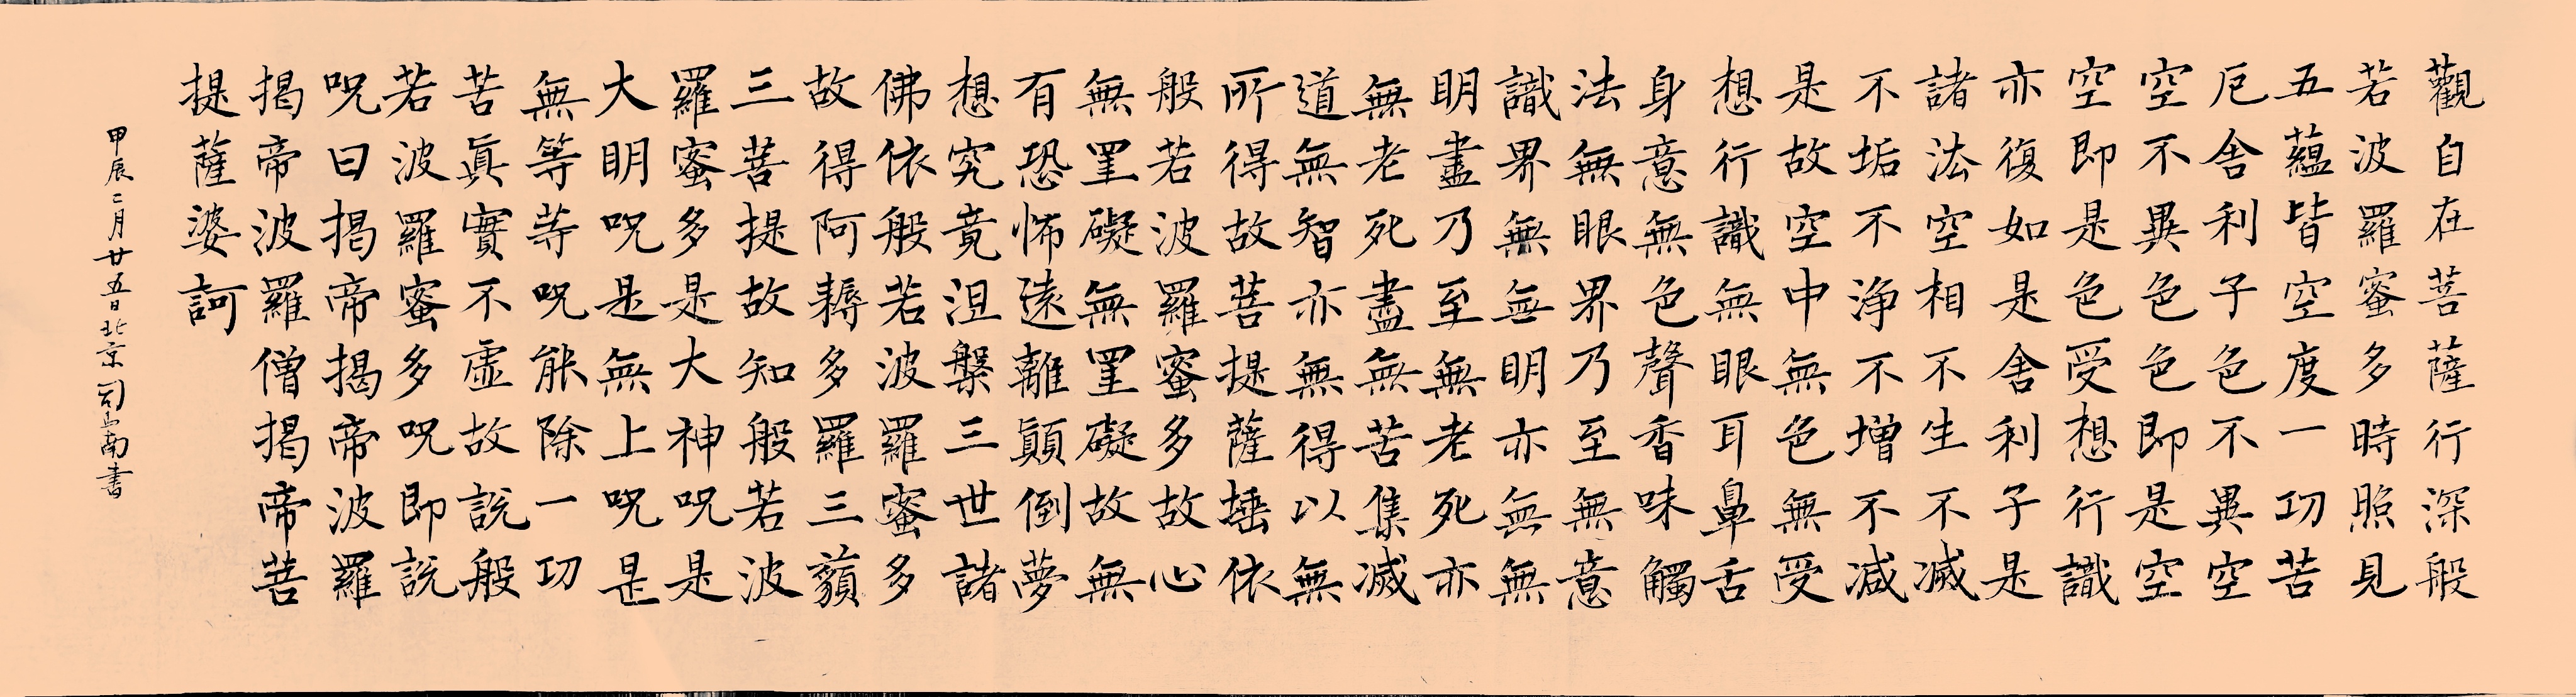 觀自在菩薩行深般
若波羅蜜多時照見
五蘊皆空度一切苦
厄舍利子色不異空
空不異色色即是空
空即是色受想行識
亦復如是舍利子是
諸法空相不生不滅
不垢不浄不增不減
是故空中無色無受
想行識無眼耳鼻舌
身意無色聲香味觸
法無眼界乃至無意
識界無無明亦無無
明盡乃至無老死亦
無老死盡無苦集滅
道無智亦無得以無
所得故菩提薩埵依
般若波羅蜜多故心
無罣礙無罣礙故無
有恐怖遠離顛倒夢
想究竟涅槃三世諸
佛依般若波羅蜜多
故得阿耨多羅三藐
三菩提故知般若波
羅蜜多是大神呪是
大明呪是無上呪是
無等等呪能除一切
苦真實不虛故說般
若波羅蜜多呪即說
呪曰揭帝揭帝波羅
揭帝波羅僧揭帝菩
提薩婆訶
甲辰二月廿五日北京司馬南書